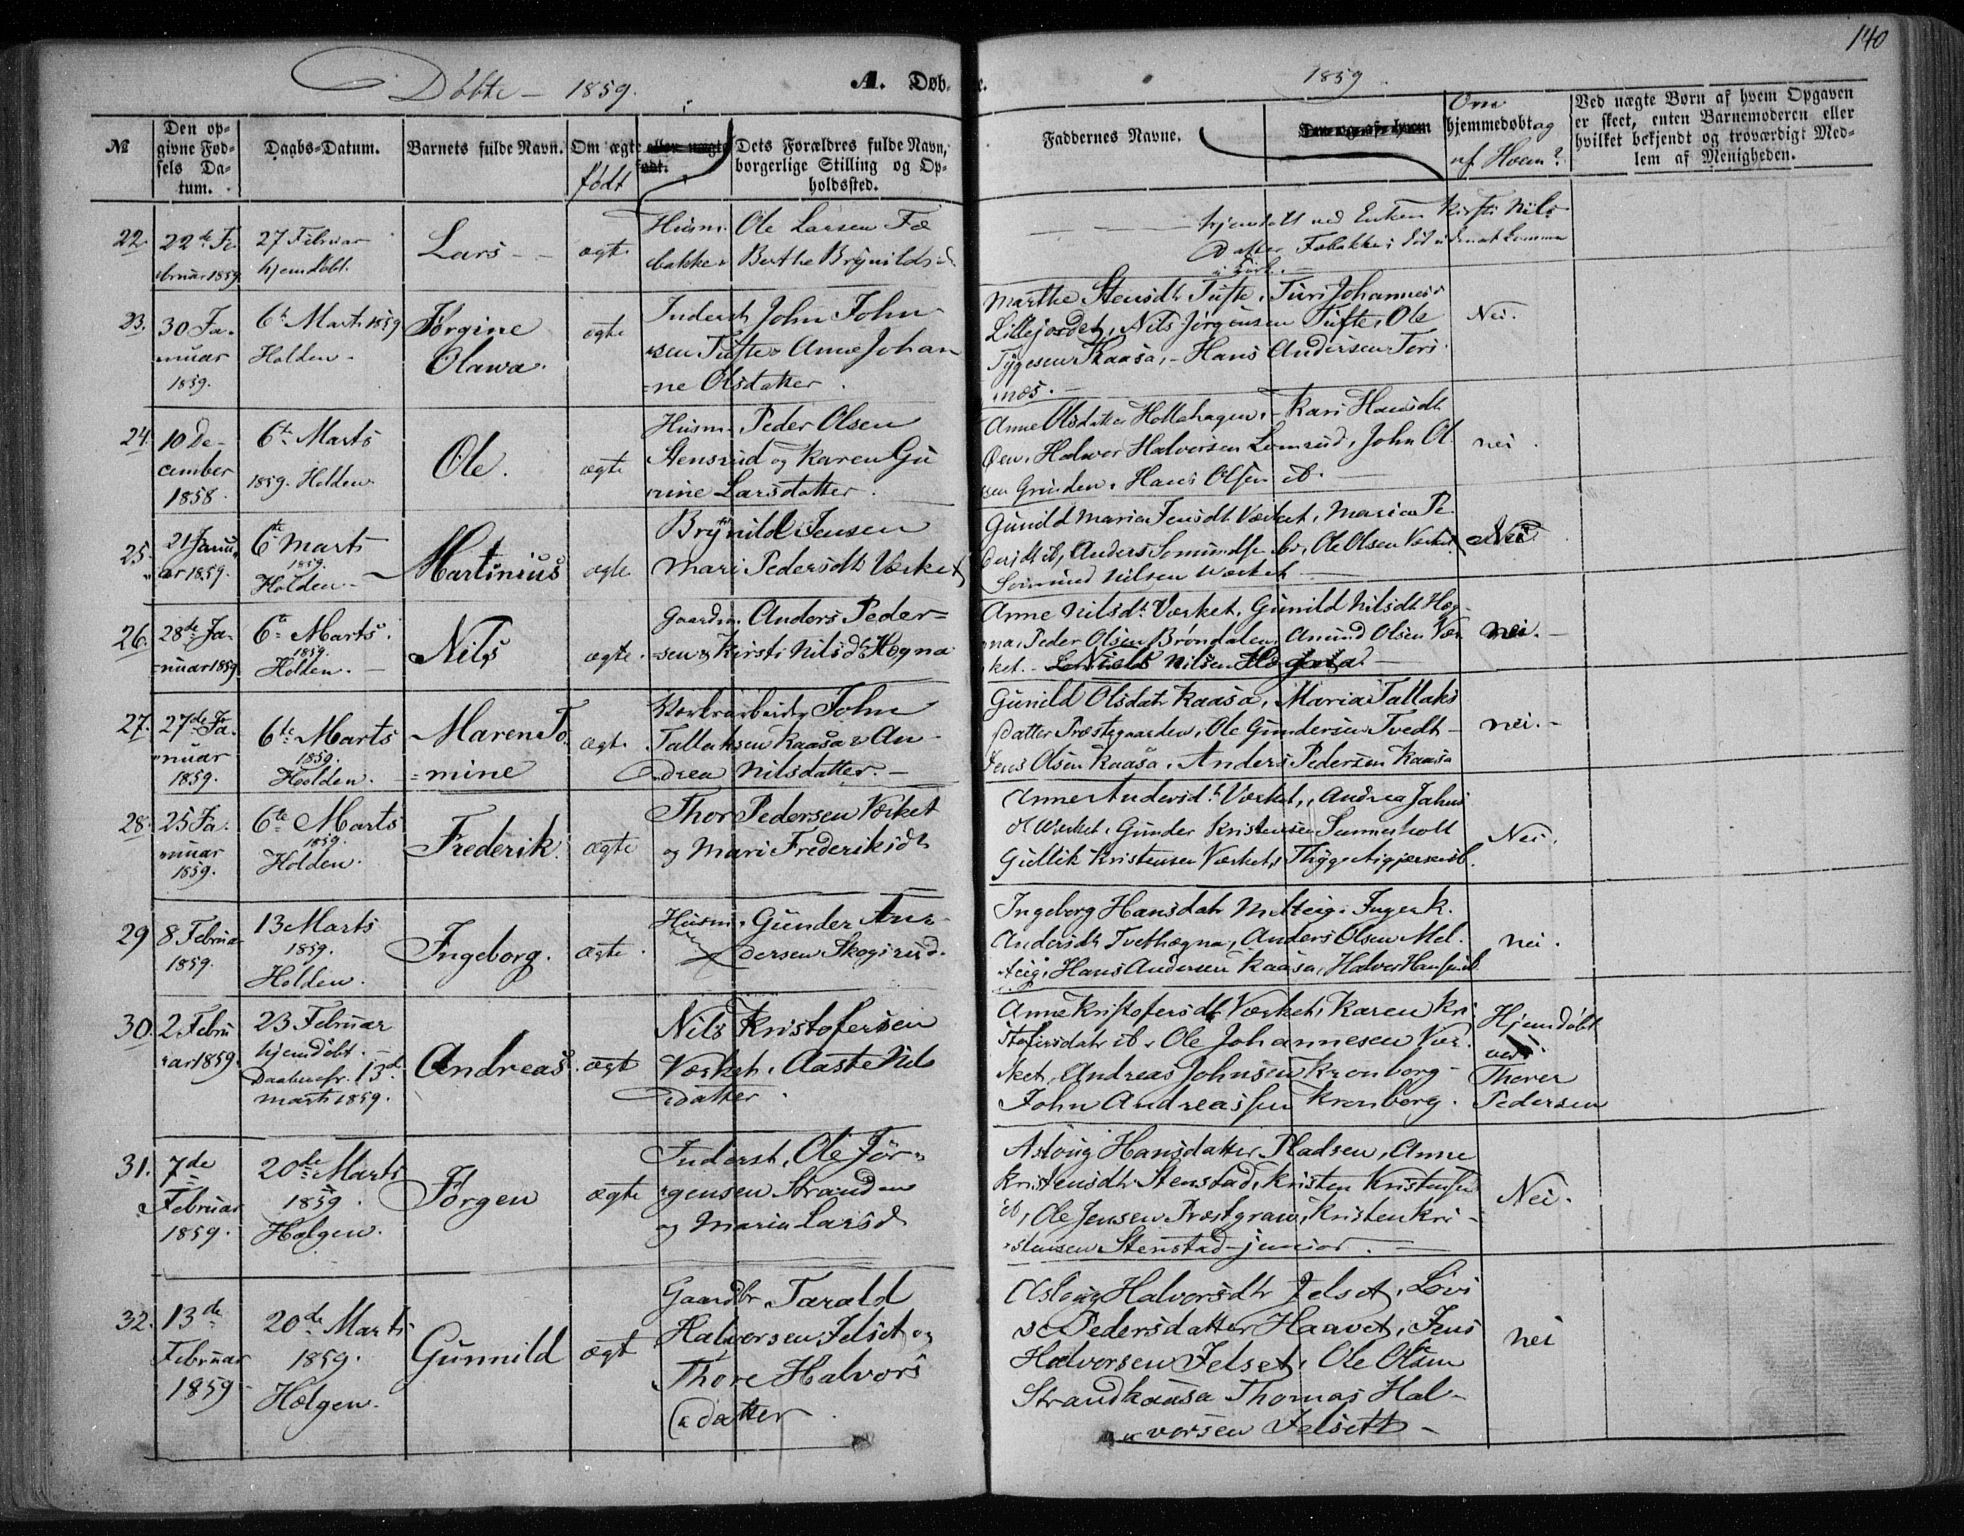 140
Døbte - 1859.
A. Døb-
e.
1859.
№
Den op-
givne Fød-
sels Da-
tum.
Daabs-Datum.
Barnets fulde Navn.
Om ægte
født
eller uægte
født.
Dets Forældres fulde Navn,
borgerlige Stilling og Op-
holdssted.
Faddernes Navne.
Om
hjemmedøbt og
af Hvem?
Ved uægte Børn af hvem Opgaven
er skeet, enten Barnemoderen eller
hvilket bekjendt og troværdigt Med-
lem af Menigheden.
22.
22de Fe-
bruar 1859.
27 Februar
hjemdøbt.
Lars -
ægte
Husm. Ole Larsen Fæ
bakke & Berthe Brynilds d
hjemdøbt ved Enken Kirsti Nils-
datter Fæbakke; død
i Kirk.
23.
30 Ja-
nuar
1859.
6te Marts 1859
Holden -
Jørgine
Olava.
ægte
Inderst John John-
sen Tufte & Anne Johan
=ne Olsdatter.
Marthe Stensdtr Tufte, Turi Johannesd
Lillejordet, Nils Jørgensen Tufte, Ole
Tygesen Kaasa, - Hans Andersen Teri
næs. -
Nei.
24.
10 De-
cember
1858.
6te Marts
1859. Holden.
Ole.
ægte
Husm. Peder Olsen
Stensrud og Karen Gu
nine Larsdatter.
Anne Olsdatter Hollahagen, - Kari Hansdt
Halvor Halvorsen Lomrud, John Ol
sen Grinden, Hans Olsen ib. -
nei.
25.
21 Janu
ar 1859.
6te Marts
1859.
Holden -
Martinius
ægte.
Brynild Jensen
Mari Pedersdtr Værket
Gunild Maria Jensdt Værket, Maren Pe
dersdt ib, Anders ib, Ole Olsen Værket
Nilsen Værket -
Nei
26.
28de Ja-
nuar 1859
6te Marts.
1859.
Holden. -
Nils
ægte.
Gaardm. Anders Peder=
sen & Kirsti Nilsd Høgna
Anne Nilsdt. Værket, Gunild Nilsdt Høg-
na, Peder Olsen Brøndalen, Amund Olsen Vær
ket. - Nilsen
nei. -
27.
27de Ja-
nuar
1859.
6te Marts
1859.
Holden.
Maren To
=mine
ægt.
John
Tallaksen Kaasa & An-
drea Nilsdatter. -
Gunild Olsdatr Kaasa, Maria Tallaks
datter Præstegaarden, Ole Gundersen Tvedt -
Jens Olsen Kaasa, Anders Pedersen Kaasa
nei. -
28.
25 Ja-
nuar
1859.
6te Marts
1859.
Holden.
Frederik.
ægte
Thor Pedersen Værket
og Mari Frederiksdt
Anne Andersdt. Værket, Andrea Jahns
dt Værket, Gunder Kristensen
Gullik Kristensen Værket, Thyge
Nei.
29
8 Februar
1859.
13 Marts
1859.
Holden.
Ingeborg.
ægte.
Husm. Gunder An-
dersen Skogsrud.
Ingeborg Hansdatr Melteig, Inger K.
Andersdt Tvethøgna, Anders Olsen Mel-
teig, Hans Andersen Kaasa, Halvor Hansen ib
nei.
30.
2 Febru
ar 1859.
23 Februar
hjemdøbt. -
Daaben fr. 13de
Marts 1859.
Andreas
ægt
Nils Kristofersen
Værket, Aaste Nils
datter.
Anne Kristofersdt Værket, Karen Kri
stofersdatr ib. Ole Johannesen Vær-
ket, Andreas Johnsen Kronborg -
John Andreassen Kronborg.
Hjemdøbt
ved
Thorer
Pedersen
31.
7de
Februar
1859.
20de Marts
1859.
Helgen.
Jørgen
ægte
Inderst. Ole Jør-
gensen Stranden
og Maria Larsd
Asloug Hansdatter Pladsen, Anne
Kristensdtr Stenstad, Kristen Kristensen
ib, Ole Jensen Præstgrav, Kristen Kri-
stensen Stenstad junior. -
Nei.
32.
13de
Februar
1859
20de Marts
1859.
Helgen.
Gunnild
ægt
Gaardbr. Tarald
Halvorsen Jelset og
Thore Halvors
datter.
Aslaug Halvorsdtr Jelset, Lovi
se Pedersdatter Haavet, Jens
Halvorsen Jelset, Ole Olsen
Strandkaasa Thomas Hal-
vorsen Jelsett -
nei